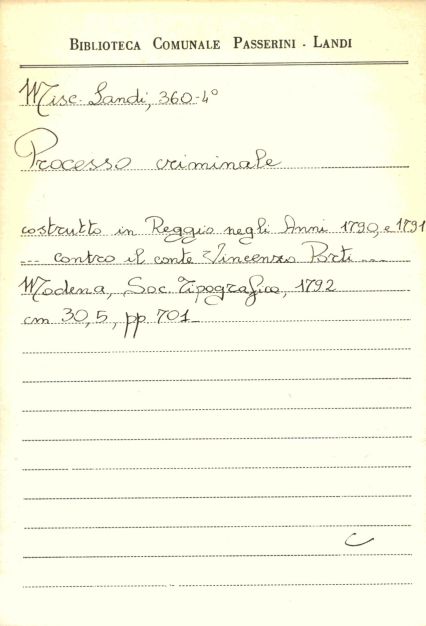 BIBLIOTECA COMUNALE PASSERINI - LANDI
Misc. Landi, 360-4°
Processo criminale
costrutto in Reggio negli Anni 1790, e 1791
... contro il conte Vincenzo Porti ...
Modena, Soc. Tipografica, 1792
cm 30,5, pp 701
C